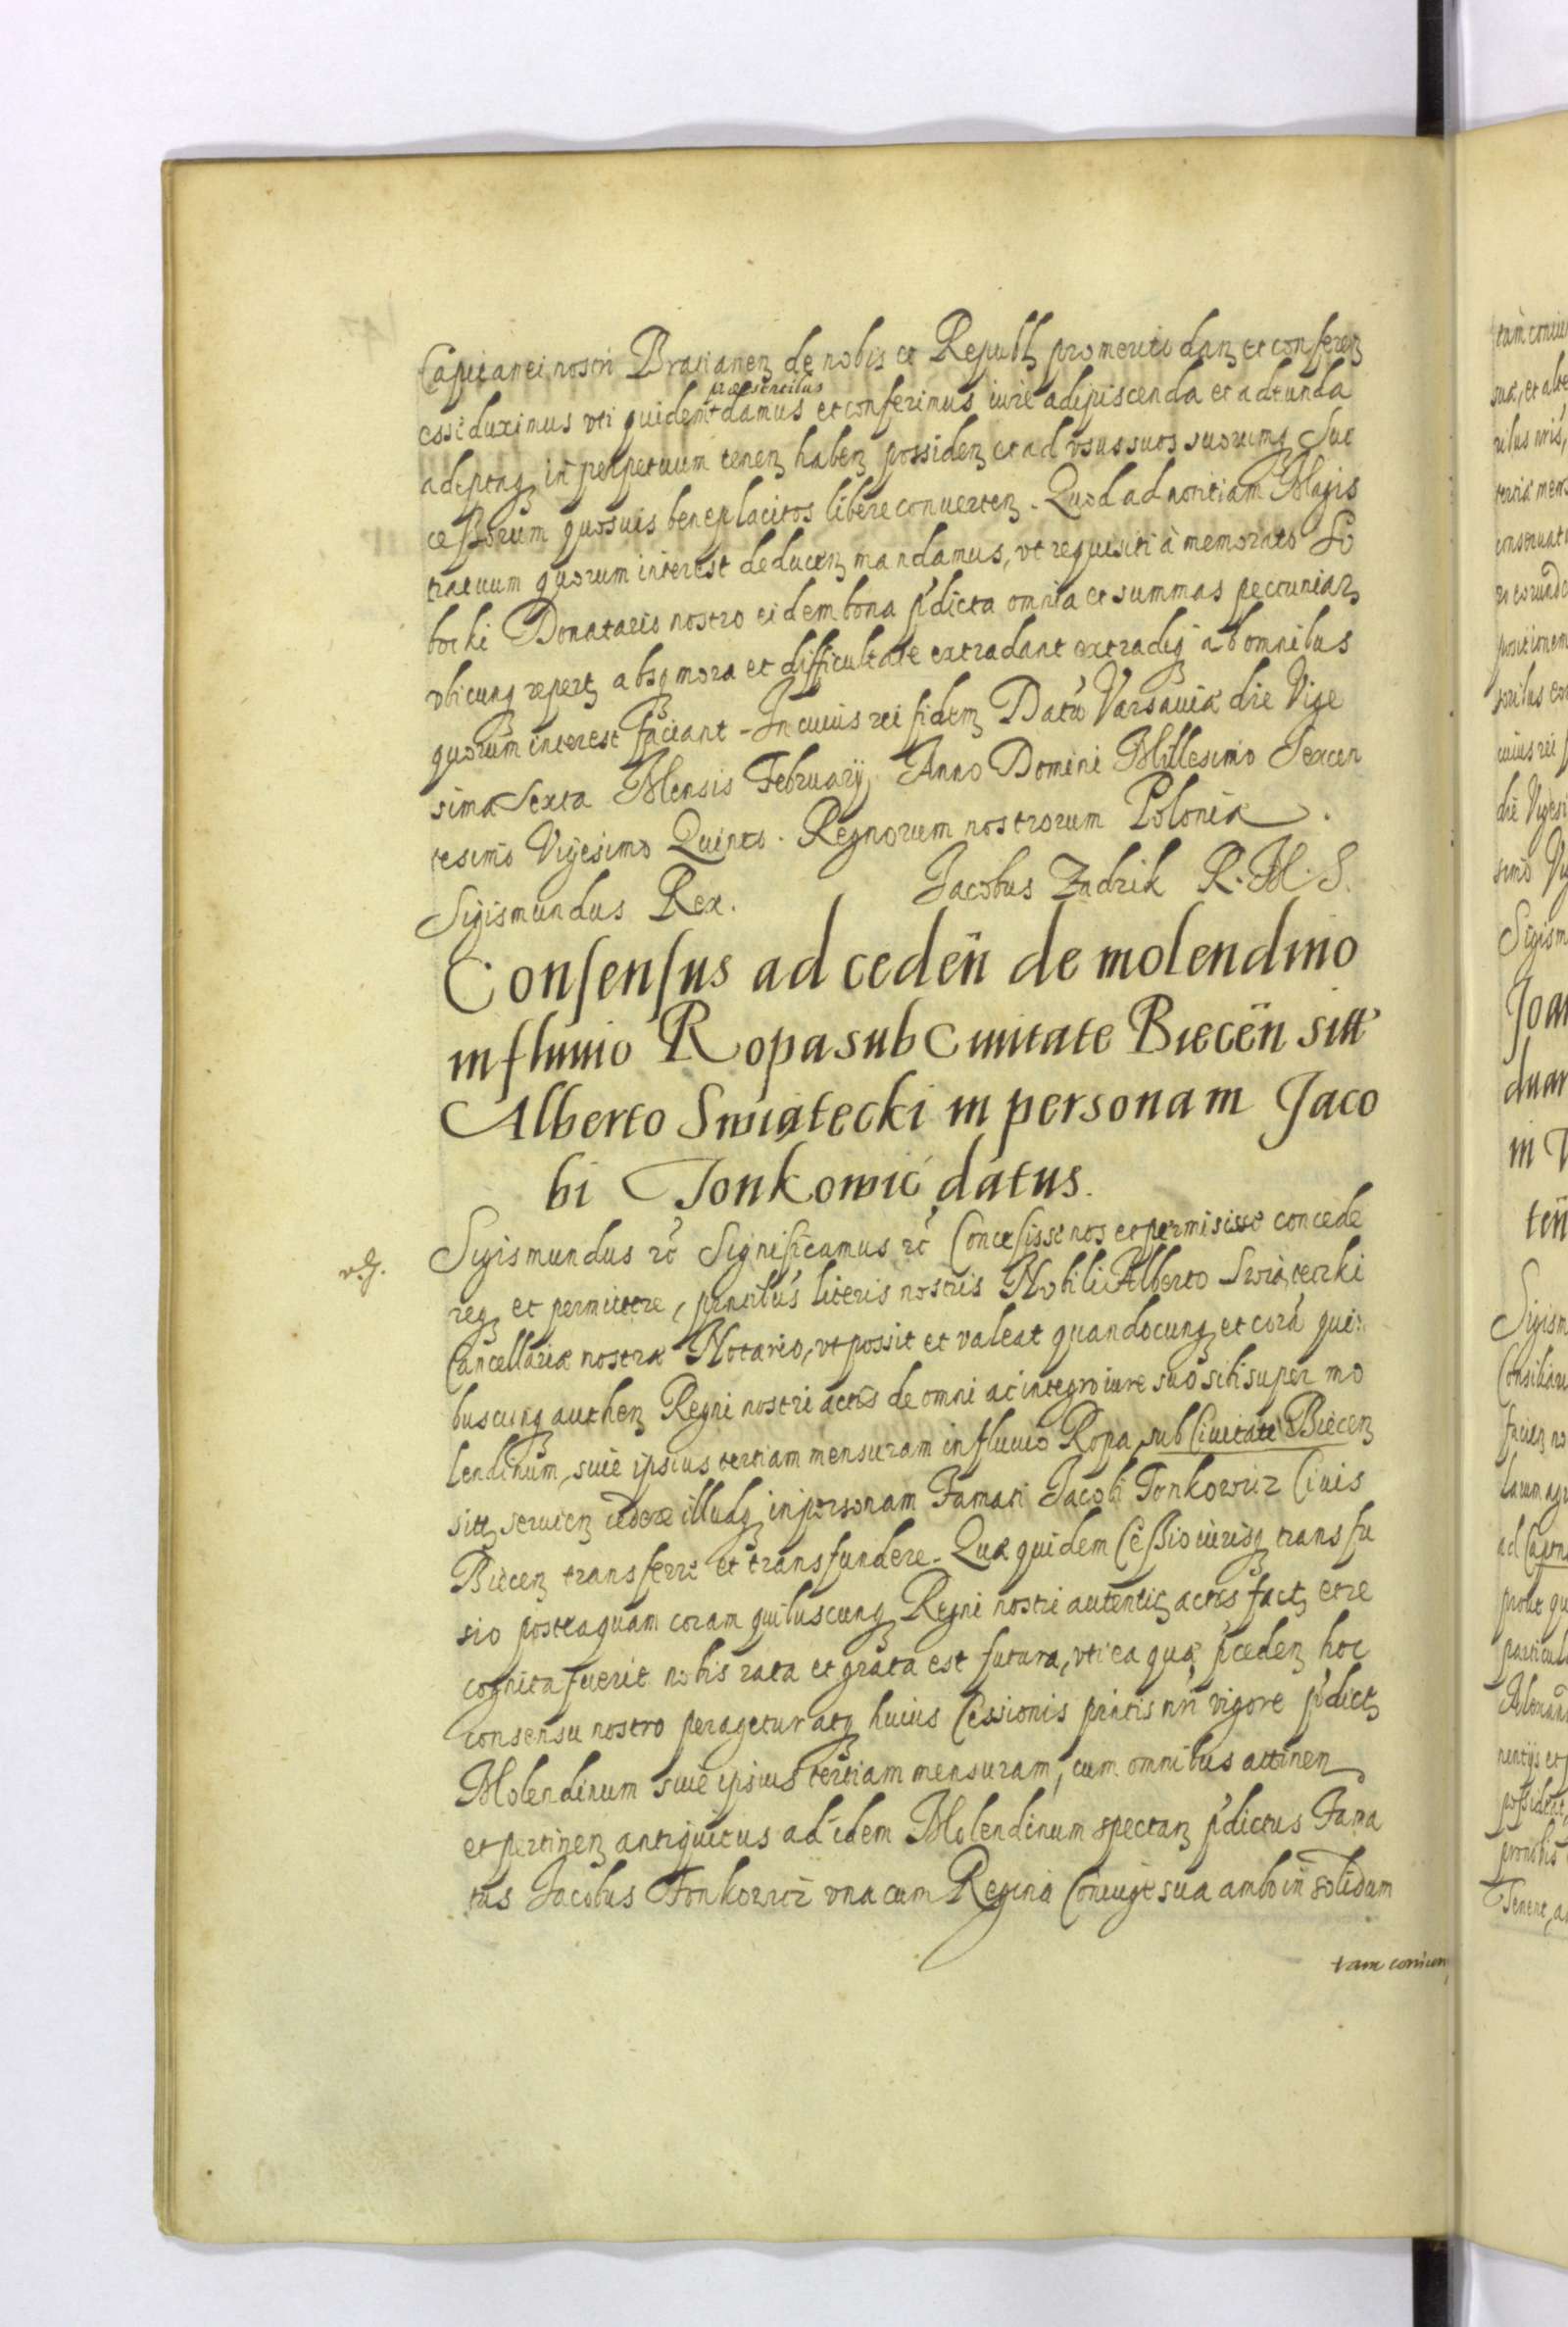 Capitanei nostri Bratianen̄ de nobis et Republ. promeriti dan̄ et conferen̄
esse duximus vti quidem præsentibus damus et conferimus iure adipiscenda et adeunda
adeptaq; in perpetuum tenen̄ haben̄ possiden̄ et ad vsus suos suorumq; Suc
cessorum quosuis beneplacitos libere conuerten̄. Quod ad notitiam Magis
tratuum quorum interest deducen̄ mandamus, vt requisiti à memorato So
bocki Donatario nostro eidem bona p̄dicta omnia et summas pecuniar̄
vbicunq; repert̄ absq; mora et difficultate extradant extradiq; ab omnibus
quorum interest faciant. In cuius rei fidem̄ Datū Varsauiæ die Vige
sima Sexta Mensis Februarij Anno Domini Millesimo Sexcen
tesimo Vigesimo Quinto. Regnorum nostrorum Poloniæ.
Sigismundus Rex. Jacobus Zadzik R. M. S.
Consensus ad ceden̄ de molendino
in fluuio Ropa sub Ciuitate Biecen̄ sitt
Alberto Swiątecki in personam Jaco
bi Tonkowic datus.
Sigismundus rc̄ Significamus rc̄ Concessisse nos et permisisse concede
req; et permittere, pn̄tibus literis nostris Nobili Alberto Swiątecki
Cancellariæ nostræ Notario, vt possit et valeat quandocunq; et corā qui
buscunq; authen̄ Regni nostri actis de omni ac integro iure suo sibi super mo
lendinum, siue ipsius tertiam mensuram in fluuio Ropa sub Ciuitate Biecen̄
sitt̄ seruien̄ cedere illudq; in personam Famati Jacobi Tonkowicz Ciuis
Biecen̄ transferre et transfundere. Quæ quidem Cessio iurisq; transfu
sio posteaquam coram quibuscunq; Regni nostri autentic̄ actis fact̄ et re
cognita fuerit nobis rata et grata est futura, vti ea quæ p̄ceden̄ hoc
consensu nostro peragetur atq; huius Cessionis pn̄tis nr̄i vigore p̄dict̄
Molendinum siue ipsius tertiam mensuram, cum omnibus attinen̄
et pertinen̄ antiquitus ad idem Molendinum spectan̄ p̄dictus Fama
tus Jacobus Tonkowicz vna cum Regina Coniuge sua ambo in solidum
tam coniun